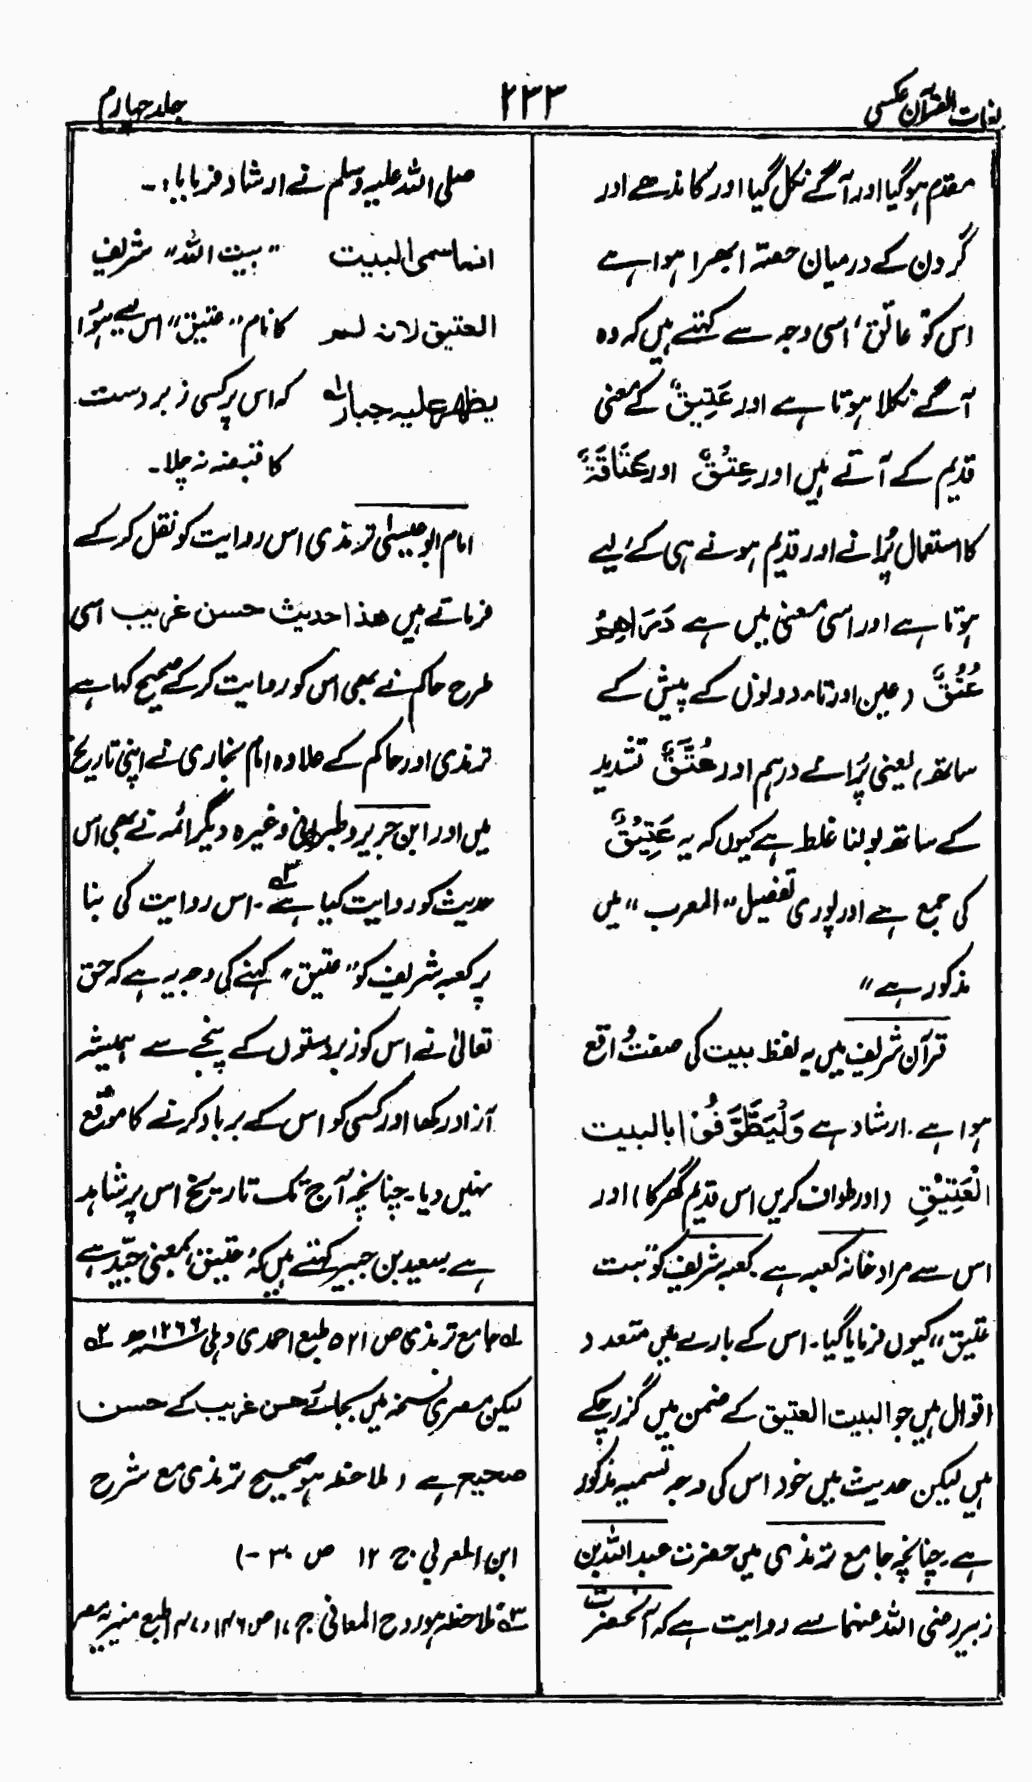 لغات القرآن عکسی
۲۳۳
جلد چہارم
مقدم ہوگیا اور آگے نکل گیا اور کاندھے اور
گردن کے درمیان حصہ ابھرا ہوا ہے
اس کو ’عاتق‘ اسی وجہ سے کہتے ہیں کہ وہ
آگے نکلا ہوتا ہے اور عَتِيْقٌ کے معنی
قدیم کے آتے ہیں اور عِتْقٌ اور عَتَاقَةٌ
کا استعمال پُرانے اور قدیم ہونے ہی کے لیے
ہوتا ہے اور اسی معنی میں ہے دَرَاهِمُ
عُتُقٌ (عین اور تاء دونوں کے پیش کے
ساتھ) یعنی پُرانے درہم اور عُتَّقٌ تشدید
کے ساتھ بولنا غلط ہے کیوں کہ یہ عَتِيْقٌ
کی جمع ہے اور پوری تفصیل "المعرب" میں
مذکور ہے"
قرآن شریف میں یہ لفظ بیت کی صفت واقع
ہوا ہے۔ ارشاد ہے وَلْيَطَّوَّفُوْا بالبيت
الْعَتِيْقِ (اور طواف کریں اس قدیم گھر کا) اور
اس سے مراد خانہ کعبہ ہے۔ کعبہ شریف کو "بیت
عتیق" کیوں فرمایا گیا۔ اس کے بارے میں متعدد
اقوال ہیں جو البیت العتیق کے ضمن میں گزر چکے
ہیں لیکن حدیث میں خود اس کی وجہ تسمیہ مذکور
ہے۔ چنانچہ جامع ترمذی میں حضرت عبداللہ بن
زبیر رضی اللہ عنہما سے روایت ہے کہ آنحضرت
صلی اللہ علیہ وسلم نے ارشاد فرمایا:۔
انما سمی البیت "بیت اللہ" شریف
العتیق لانه لم کا نام "عتیق" اس لیے ہوا
یظهر علیه جبار؂۱ کہ اس پر کسی زبردست
کا قبضہ نہ چلا۔
امام ابو عیسیٰ ترمذی اس روایت کو نقل کر کے
فرماتے ہیں هذا حدیث حسن غریب اسی
طرح حاکم نے بھی اس کو روایت کر کے صحیح کہا ہے
ترمذی اور حاکم کے علاوہ امام بخاری نے اپنی تاریخ
میں اور ابن جریر و طبرانی وغیرہ دیگر ائمہ نے بھی اس
حدیث کو روایت کیا ہے؂۳۔ اس روایت کی بنا
پر کعبہ شریف کو "عتیق" کہنے کی وجہ یہ ہے کہ حق
تعالیٰ نے اس کو زبردستوں کے پنجے سے ہمیشہ
آزاد رکھا اور کسی کو اس کے برباد کرنے کا موقع
نہیں دیا۔ چنانچہ آج تک تاریخ اس پر شاہد
ہے۔ سعید بن جبیر کہتے ہیں کہ ’عتیق‘ بمعنی جیّد ہے
؂۱ جامع ترمذی ص ۵۲۱ طبع احمدی دہلی ۱۲۶۶ھ ؂۲
لیکن مصری نسخہ میں بجائے حسن غریب کے حسن
صحیح ہے (ملاحظہ ہو صحیح ترمذی مع شرح
ابن العربی ج ۱۲ ص ۳۰۔)
؂۳ ملاحظہ ہو روح المعانی ج ۱۷ ص ۱۴۶ و ۱۴۷ طبع منیریہ مصر